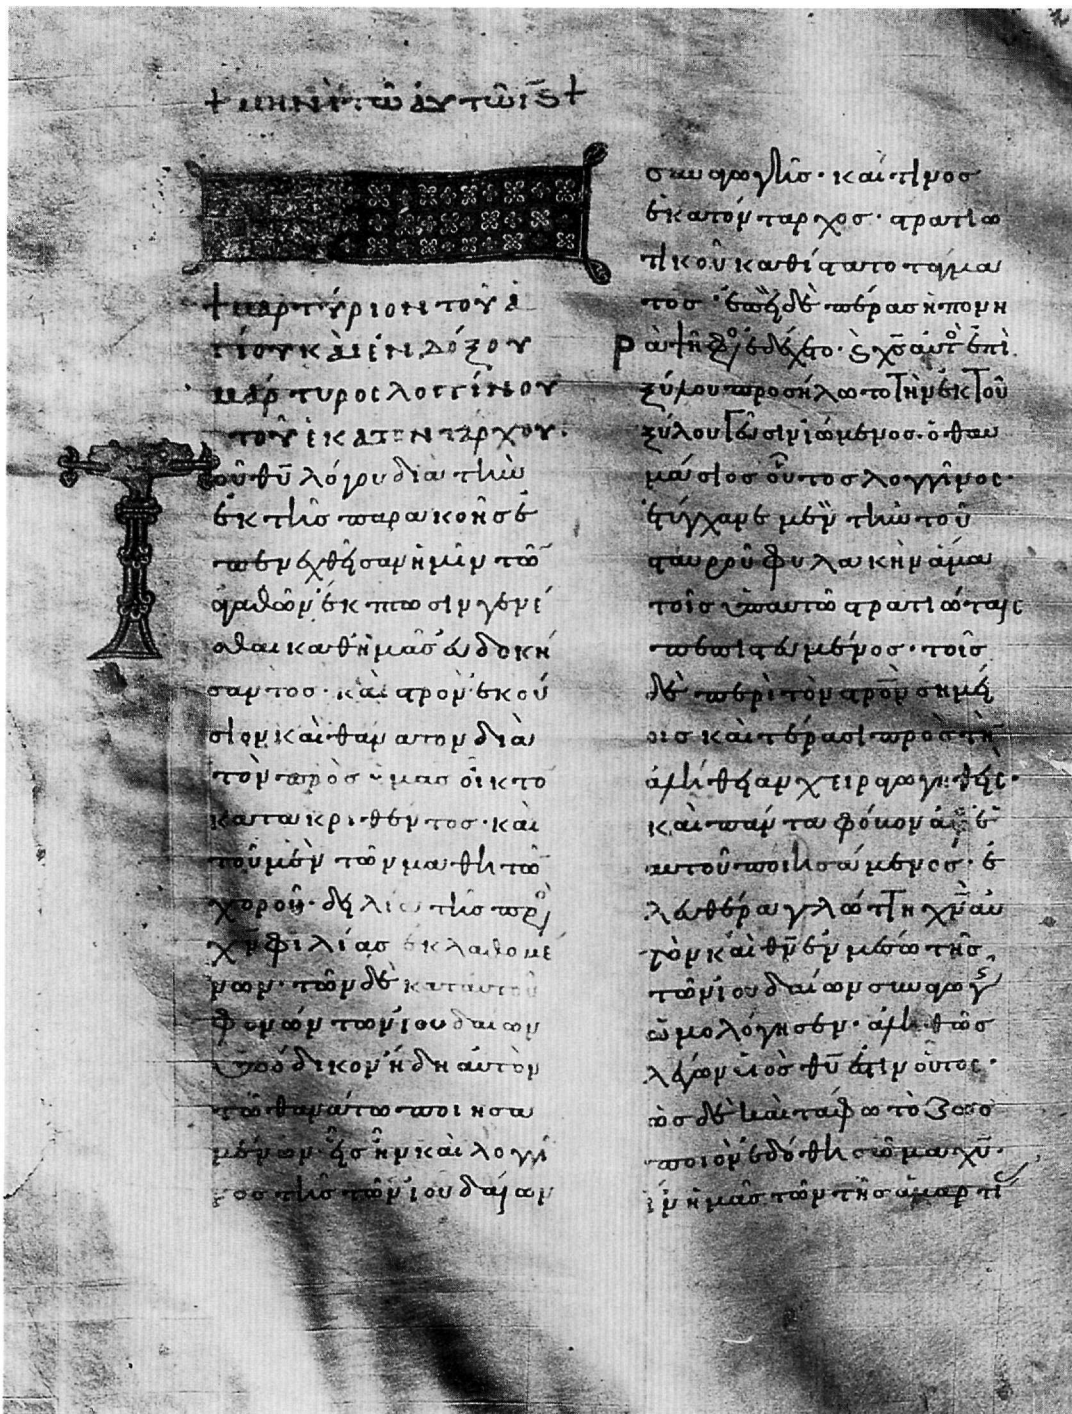 + μηνὶ τῶ αὐτῶ ιϛ +
+ μαρτύριον τοῦ ἁ
γίου καὶ ἐνδόξου
μάρτυρος λογγίνου
τοῦ ἑκατοντάρχου.
Τοῦ θῦ λόγου διὰ τὴν
ἐκ τῆς παρακοῆς ἐ
πενεχθεῖσαν ἡμῖν τῶ
ἀγαθῶν ἔκπτωσιν γενέ
σθαι καθ' ἡμᾶς εὐδοκή
σαντος· καὶ στρον ἑκού
σιον καὶ θάνατον διὰ
τὸν πρὸς ἡμᾶς οἶκτο
κατακριθέντος· καὶ
τοῦ μὲν τῶν μαθητῶ
χοροῦ· δειλία τῆς πρ
χν φιλίας ἐκλαθομέ
νων· τῶν δὲ κατ' αὐτοῦ
φονών των ἰουδαίων
ὑπόδικον ἤδη αὐτὸν
τῶ θανάτω ποιησα
μένων· εἷς ἦν καὶ λογγῖ
νος τῆς τῶν ἰουδαίων
συναγωγῆς· καί τινος
ἑκατόνταρχος· στρατιω
τικοῦ καθίστατο τάγμα
τος· ἐπεὶ δὲ πέρας ἡ πονη
ρὰ ἐδέχετο· χς ἐπὶ
ξύλου προσήλωτο τὴν ἐκ τοῦ
ξύλου ἰώμενος· ὁ θαυ
μάσιος οὗτος λογγῖνος·
ἐτύγχανε μὲν τὴν τοῦ
σταυροῦ φυλακὴν ἅμα
τοῖς ὑπ' αὐτῶ στρατιώταις
πεπιστευμένος· τοῖς
δὲ περὶ τὸν στρον σημεί
οις καὶ τέρασι πρὸς τὴν
ἀλήθειαν χειραγωγηθείς·
καὶ πάντα φόβον ἀφ' ἑ
αυτοῦ ποιησάμενος· ἐ
λευθέρα γλώττη χν αὐ
τὸν καὶ θν ἐν μέσω τῆς
τῶν ἰουδαίων συναγωγ
ὡμολόγησεν· ἀληθῶς
λέγων υἱὸς θῦ ἐστὶν οὗτος·
ὡς δὲ καὶ τάφω τὸ ζωο
ποιὸν ἐδόθη σῶμα χῦ·
ἵν' ἡμᾶς τῶν τῆς ἁμαρτί